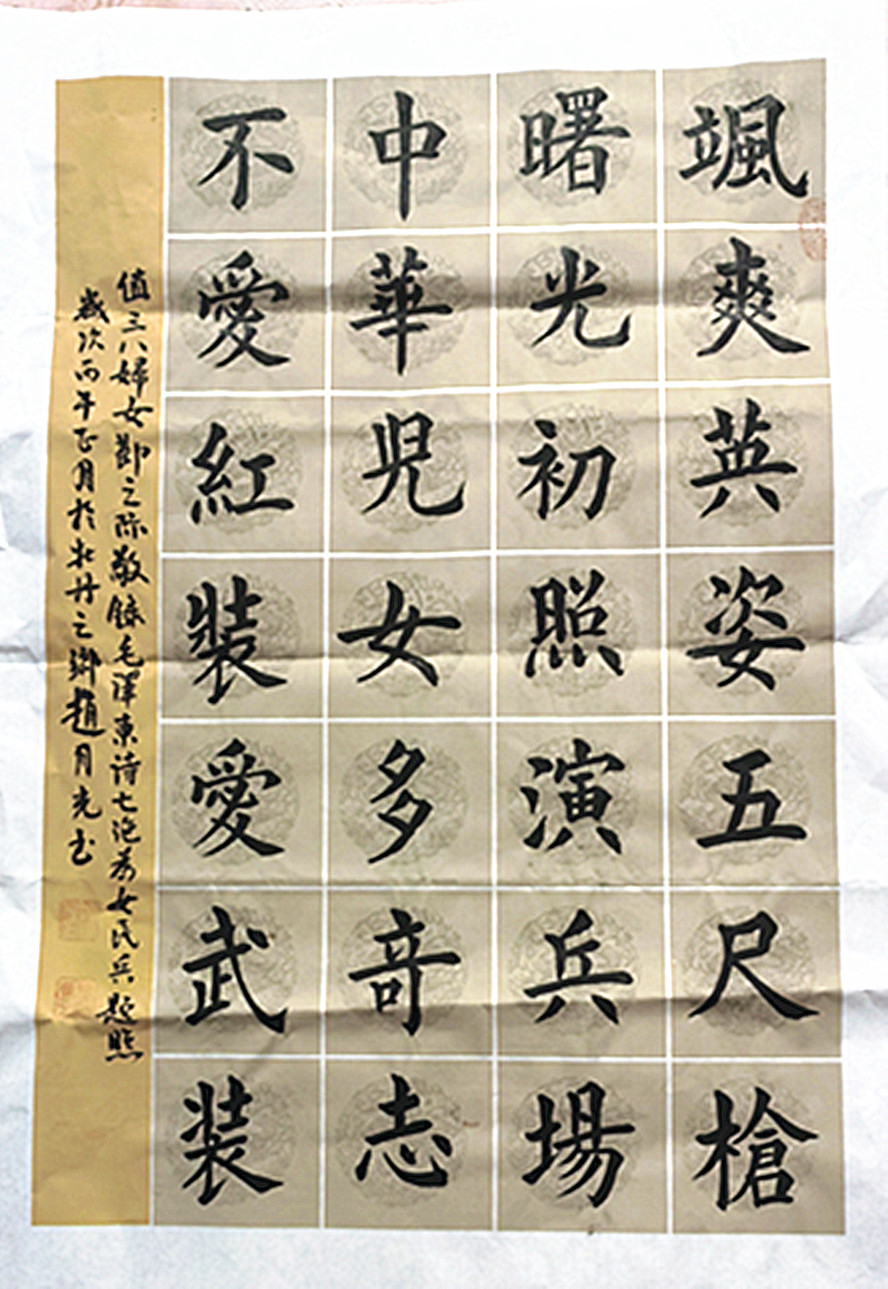 颯爽英姿五尺槍
曙光初照演兵場
中華児女多奇志
不愛紅裝愛武裝
值三八婦女節之际敬錄毛澤東诗七绝為女民兵题照
歲次丙午正月於牡丹之鄉趙月光书